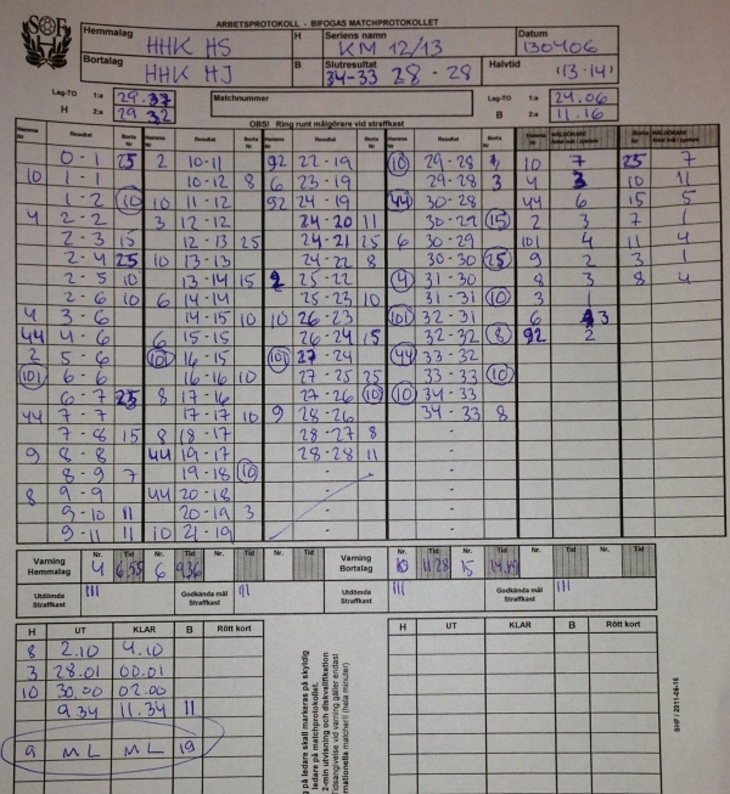 ARBETSPROTOKOLL - BIFOGAS MATCHPROTOKOLLET
Hemmalag HHK HS H Seriens namn KM 12/13 Datum 130406
Bortalag HHK HJ B Slutresultat 34-33 28 - 28 Halvtid (13-14)
Lag-TO 1:a 29.37 Matchnummer Lag-TO 1:a 24.06
H 2:a 29 32 B 2:a 11.16
OBS! Ring runt målgörare vid straffkast
Hemma Nr Resultat Borta Nr Hemma Nr Resultat Borta Nr Hemma Nr Resultat Borta Nr Hemma Nr MÅLGÖRARE Antal mål / spelare Borta Nr MÅLGÖRARE Antal mål / spelare
0 - 1 25 2 10-11 92 22 - 19 10 29-28 10 7 25 7
10 1 - 1 10-12 8 6 23 - 19 29-28 3 4 3 10 11
1 - 2 10 10 11-12 92 24 - 19 44 30-28 44 6 15 5
4 2 - 2 3 12-12 24-20 11 30-29 15 2 3 7 1
2 - 3 15 12-13 25 24-21 25 6 30-29 101 4 11 4
2 - 4 25 10 13-13 24-22 8 30-30 25 9 2 3 1
2 - 5 10 13-14 15 2 25-22 4 31-30 8 3 8 4
2 - 6 10 6 14-14 25-23 10 31-31 10 3 1
4 3 - 6 14-15 10 10 26-23 101 32-31 6 3
44 4 - 6 6 15-15 26-24 15 32-32 8 92 2
2 5 - 6 101 16-15 101 27-24 44 33-32
101 6 - 6 16-16 10 27-25 25 33-33 10
6 - 7 25 8 17-16 27-26 10 10 34-33
44 7 - 7 17-17 10 9 28-26 34-33 8
7 - 8 15 8 18-17 28-27 8
9 8 - 8 44 19-17 28-28 11
8 - 9 7 19-18 10
8 9 - 9 44 20-18
9 - 10 11 20-19 3
9 - 11 11 10 21-19
Varning Hemmalag Nr. 4 Tid 6.55 Nr. 6 Tid 9.36 Nr. Tid Nr. Tid Varning Bortalag Nr. 10 Tid 11.28 Nr. 15 Tid 14.49 Nr. Tid Nr. Tid
Utdömda Straffkast III Godkända mål Straffkast III Utdömda Straffkast III Godkända mål Straffkast III
H UT KLAR B Rött kort H UT KLAR B Rött kort
8 2.10 4.10
3 28.01 00.01
10 30.00 02.00
9.34 11.34 11
9 ML ML 19
på ledare skall markeras på skyldig
ledare på matchprotokollet.
2-min utvisning och diskvalifikation
SHF / 2011-06-16